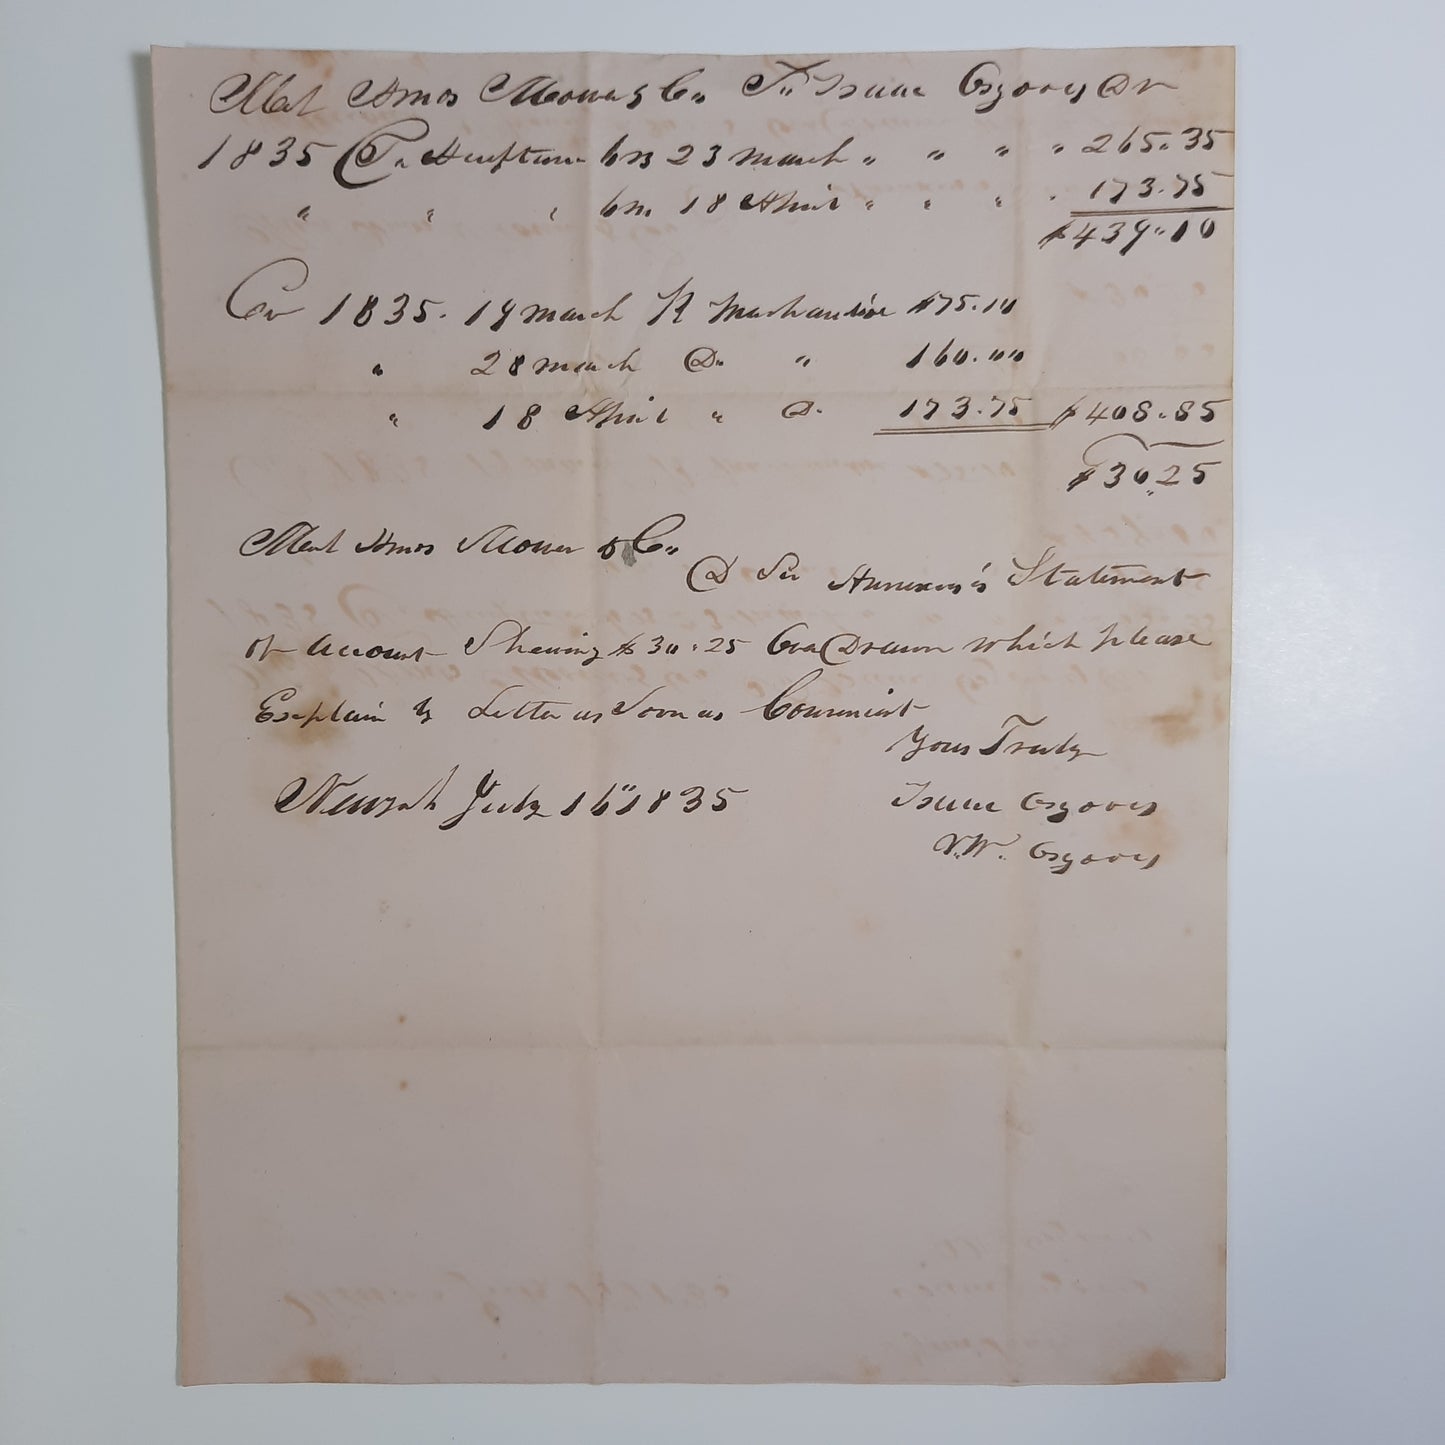 Amos Mower & Co To Isaac Osgood Dr
1835 To 23 March " " " " 265.35
" " " 18 April " " " " 173.75
$439.10
Cr 1835. 19 March Merchandise $75.10
" 28 March Do " 160.00
" 18 April " Do 173.75 $408.85
$30.25
Amos Mower & Co
D Sir Annexed is Statement
of account Shewing $30.25 Over Drawn which please
Explain by Letter as Soon as Convenient
Yours Truly
July 16" 1835
Isaac Osgood
Osgood